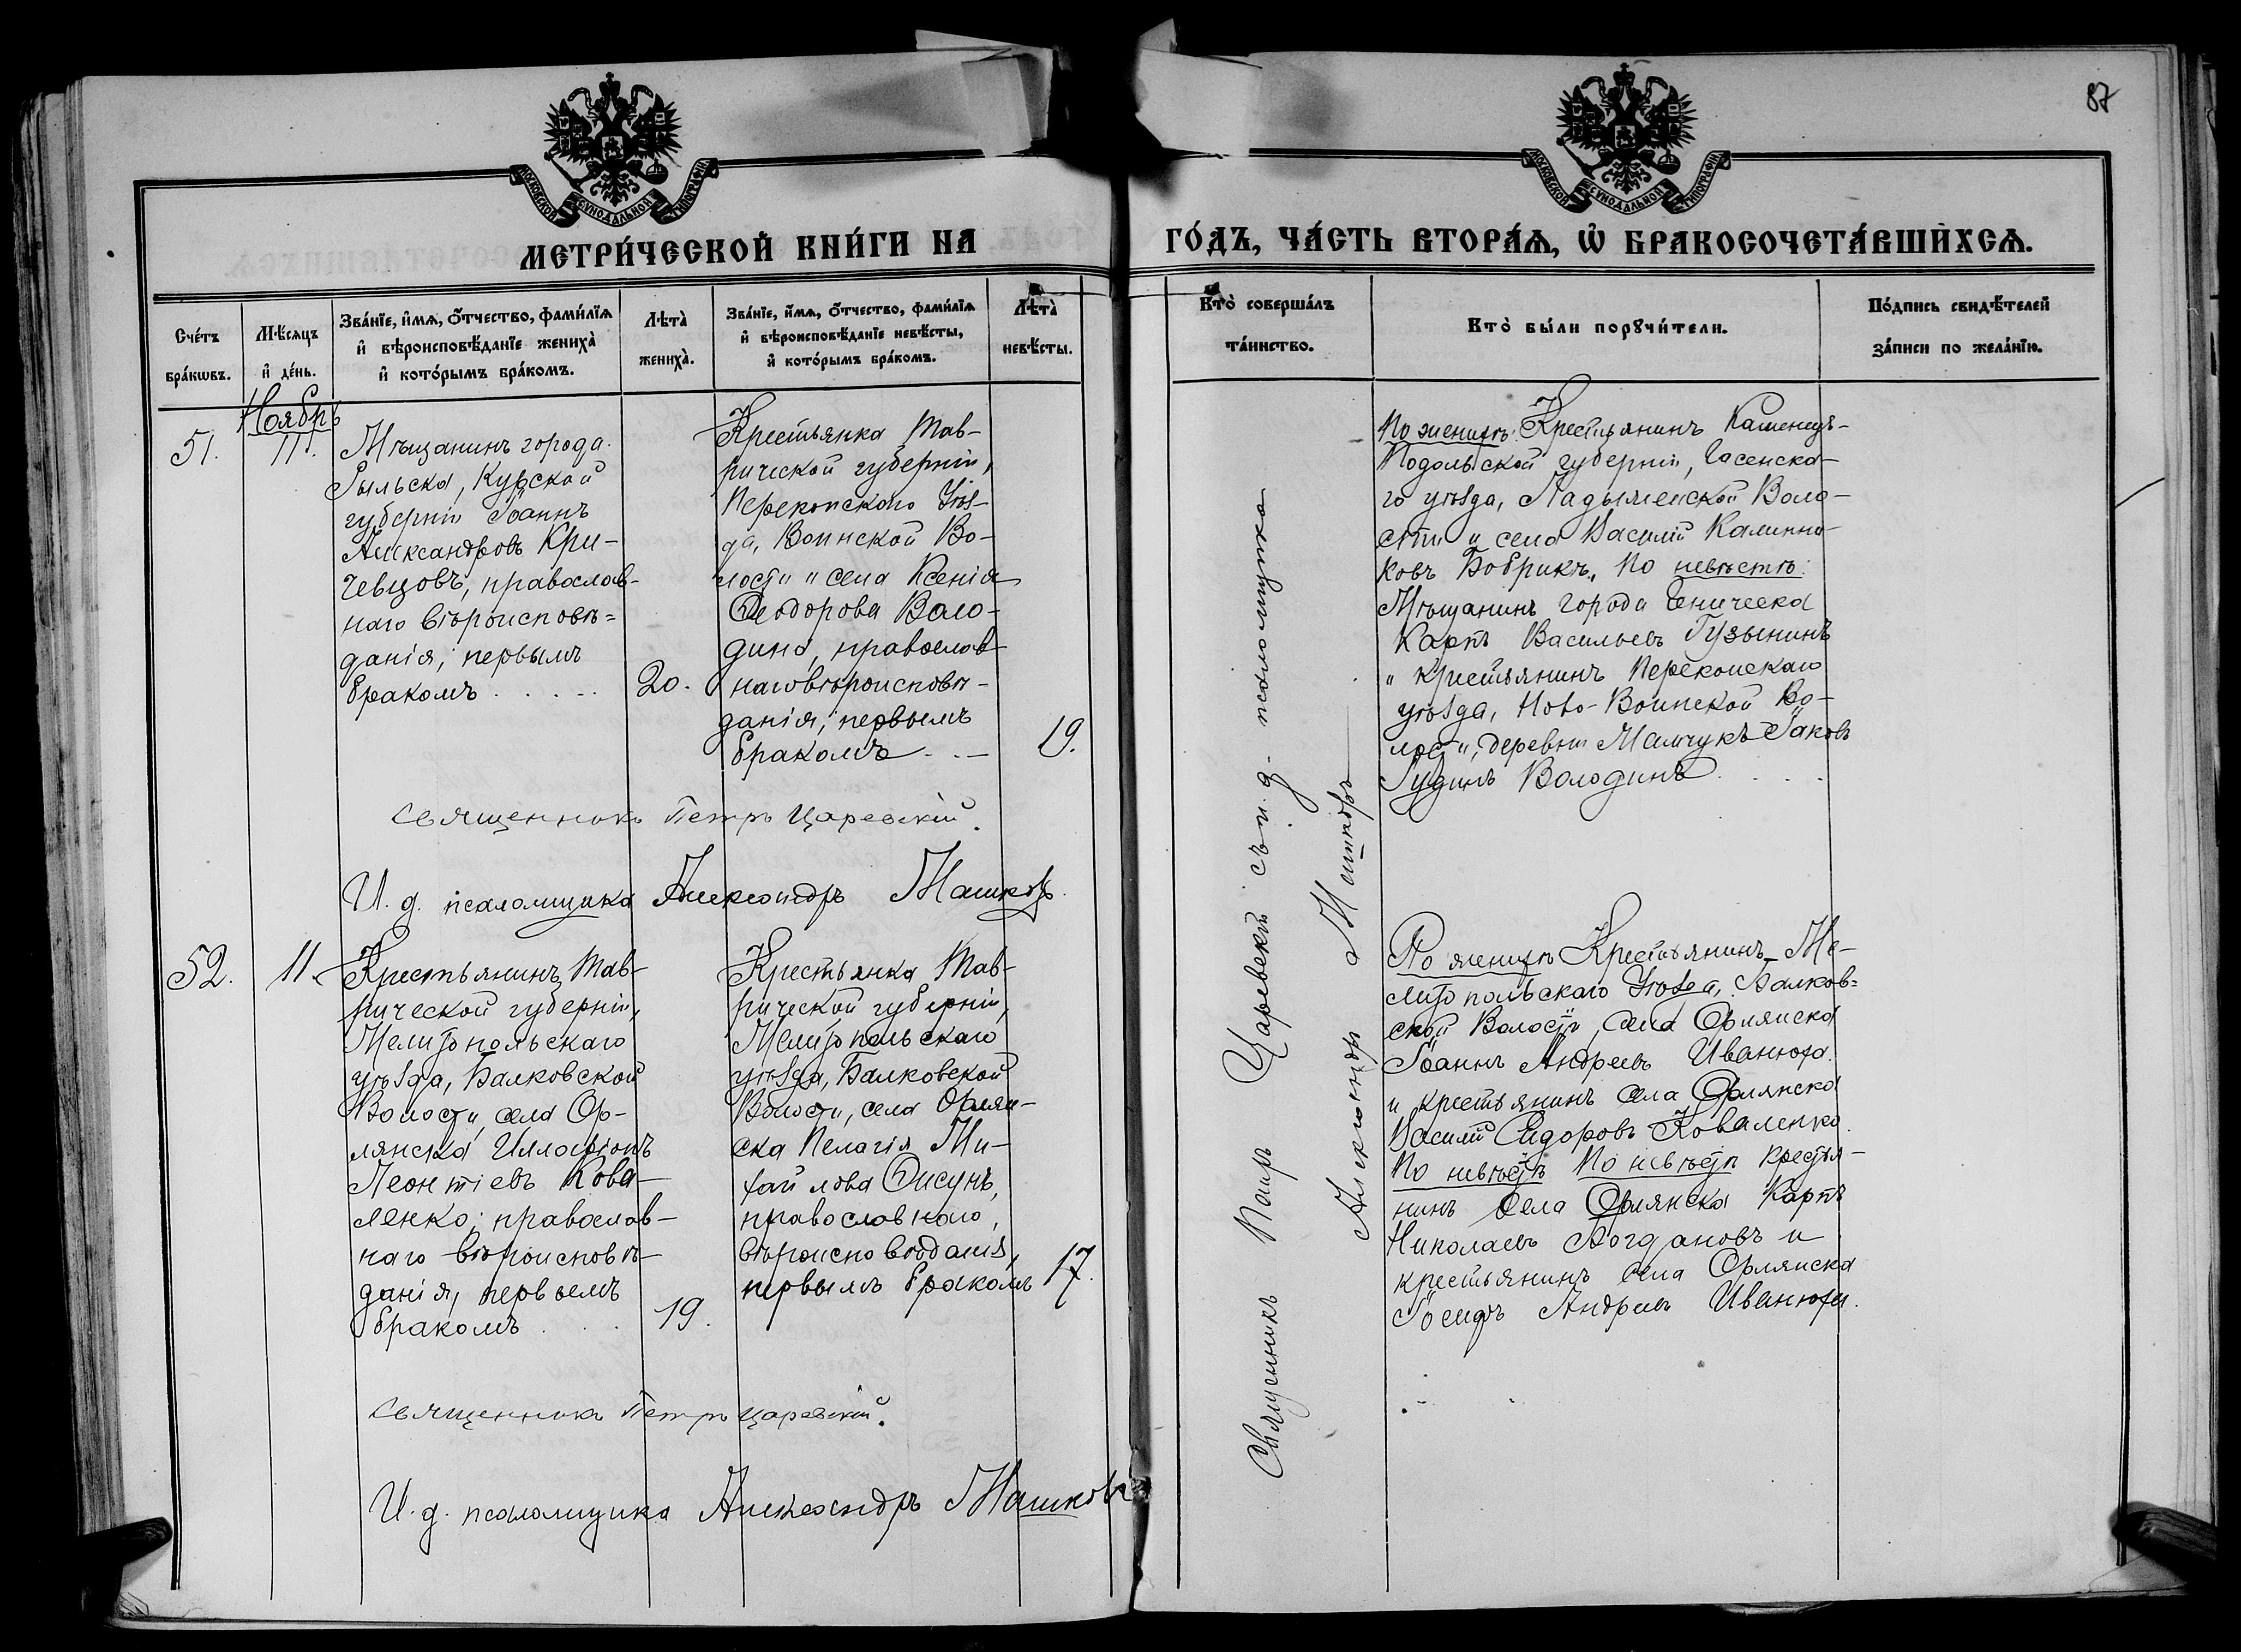 87
МОСКОВСКОЙ СѴНОДАЛЬНОЙ ТИПОГРАФІИ
МОСКОВСКОЙ СѴНОДАЛЬНОЙ ТИПОГРАФІИ
МЕТРИ́ЧЕСКОЙ КНИ́ГИ НА
ГО́ДЪ, ЧА́СТЬ ВТОРА́Ѧ, Ѡ҆ БРАКОСОЧЕТА́ВШИХСѦ.
Сче́тъ
бра́кѡвъ.
Мѣ́сяцъ
и҆ де́нь.
Зва́нїе, и҆́мѧ, о҆́тчество, фами́лїѧ
и҆ вѣроисповѣ́данїе жениха̀
и҆ кото́рымъ бра́комъ.
Лѣта̀
жениха̀.
Зва́нїе, и҆́мѧ, о҆́тчество, фами́лїѧ
и҆ вѣроисповѣ́данїе невѣ́сты,
и҆ кото́рымъ бра́комъ.
Лѣта̀
невѣ́сты.
Кто̀ соверша́лъ
та́инство.
Кто̀ бы́ли порꙋчи́тели.
По́дпись свидѣ́телей
за́писи по жела́нїю.
Ноябрь
51.
11.
Мѣщанинъ города
Рыльска, Курской
губерніи Іоаннъ
Александровъ Кри-
чевцовъ, православ-
наго вѣроисповѣ=
данія, первымъ
бракомъ
20.
Крестьянка Тав-
рической губерніи,
Перекопскаго Уѣз-
да, Воинской Во-
лости и села Ксенія
Ѳеодорова Воло-
дина, православ-
наго вѣроисповѣ-
данія, первымъ
бракомъ
19.
По женихѣ: Крестьянинъ Каменецъ-
Подольской губерніи, Гасенска-
го уѣзда, Ладыженской Воло-
сти и села Василій Калинни-
ковъ Бобрикъ, По невѣстѣ:
Мѣщанинъ города Геническа
Карпъ Васильевъ Гузынинъ
и крестьянинъ Перекопскаго
уѣзда, Ново-Воинской Во-
лости, деревни Мамчукъ Іаковъ
Іудинъ Володинъ
Священникъ Петръ Царевскій.
И. д. псаломщика Александръ Машковъ.
52.
11.
Крестьянинъ Тав-
рической губерніи,
Мелитопольскаго
уѣзда, Балковской
Волости, села Ор-
лянска Илларіонъ
Леонтіевъ Кова-
ленко, православ-
наго вѣроисповѣ-
данія, первымъ
бракомъ
19.
Крестьянка Тав-
рической губерніи,
Мелитопольскаго
уѣзда, Балковской
Волости, села Орлян-
ска Пелагія Ми-
хайлова Онсунъ,
православнаго,
вѣроисповѣданія,
первымъ бракомъ
17.
По женихѣ Крестьянинъ Ме-
литопольскаго Уѣзда, Балков=
ской Волости, села Орлянска
Іоаннъ Андреевъ Иванюха.
и крестьянинъ села Орлянска
Василій Сидоровъ Коваленко.
По невѣстѣ По невѣстѣ крестья-
нинъ села Орлянска Карпъ
Николаевъ Богдановъ и
крестьянинъ села Орлянска
Іосифъ Андреевъ Иванюха.
Священникъ Петръ Царевскій.
И. д. псаломщика Александръ Машковъ
Священникъ Петръ Царевскій съ и. д. псаломщика
Александръ Машковъ